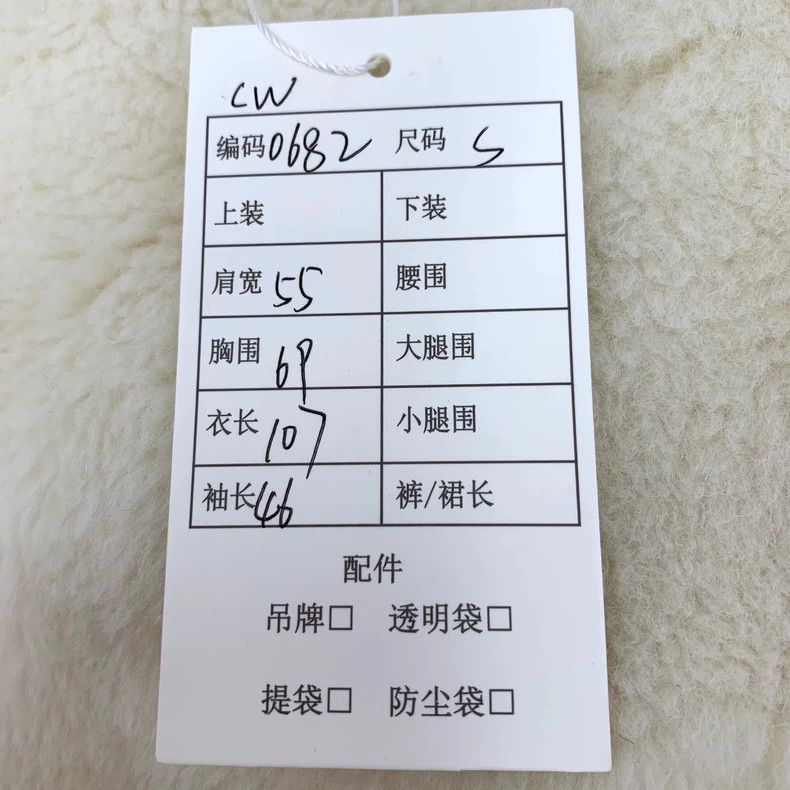 CW
编码0682 尺码 S
上装 下装
肩宽 55 腰围
胸围 69 大腿围
衣长 107 小腿围
袖长 46 裤/裙长
配件
吊牌□ 透明袋□
提袋□ 防尘袋□